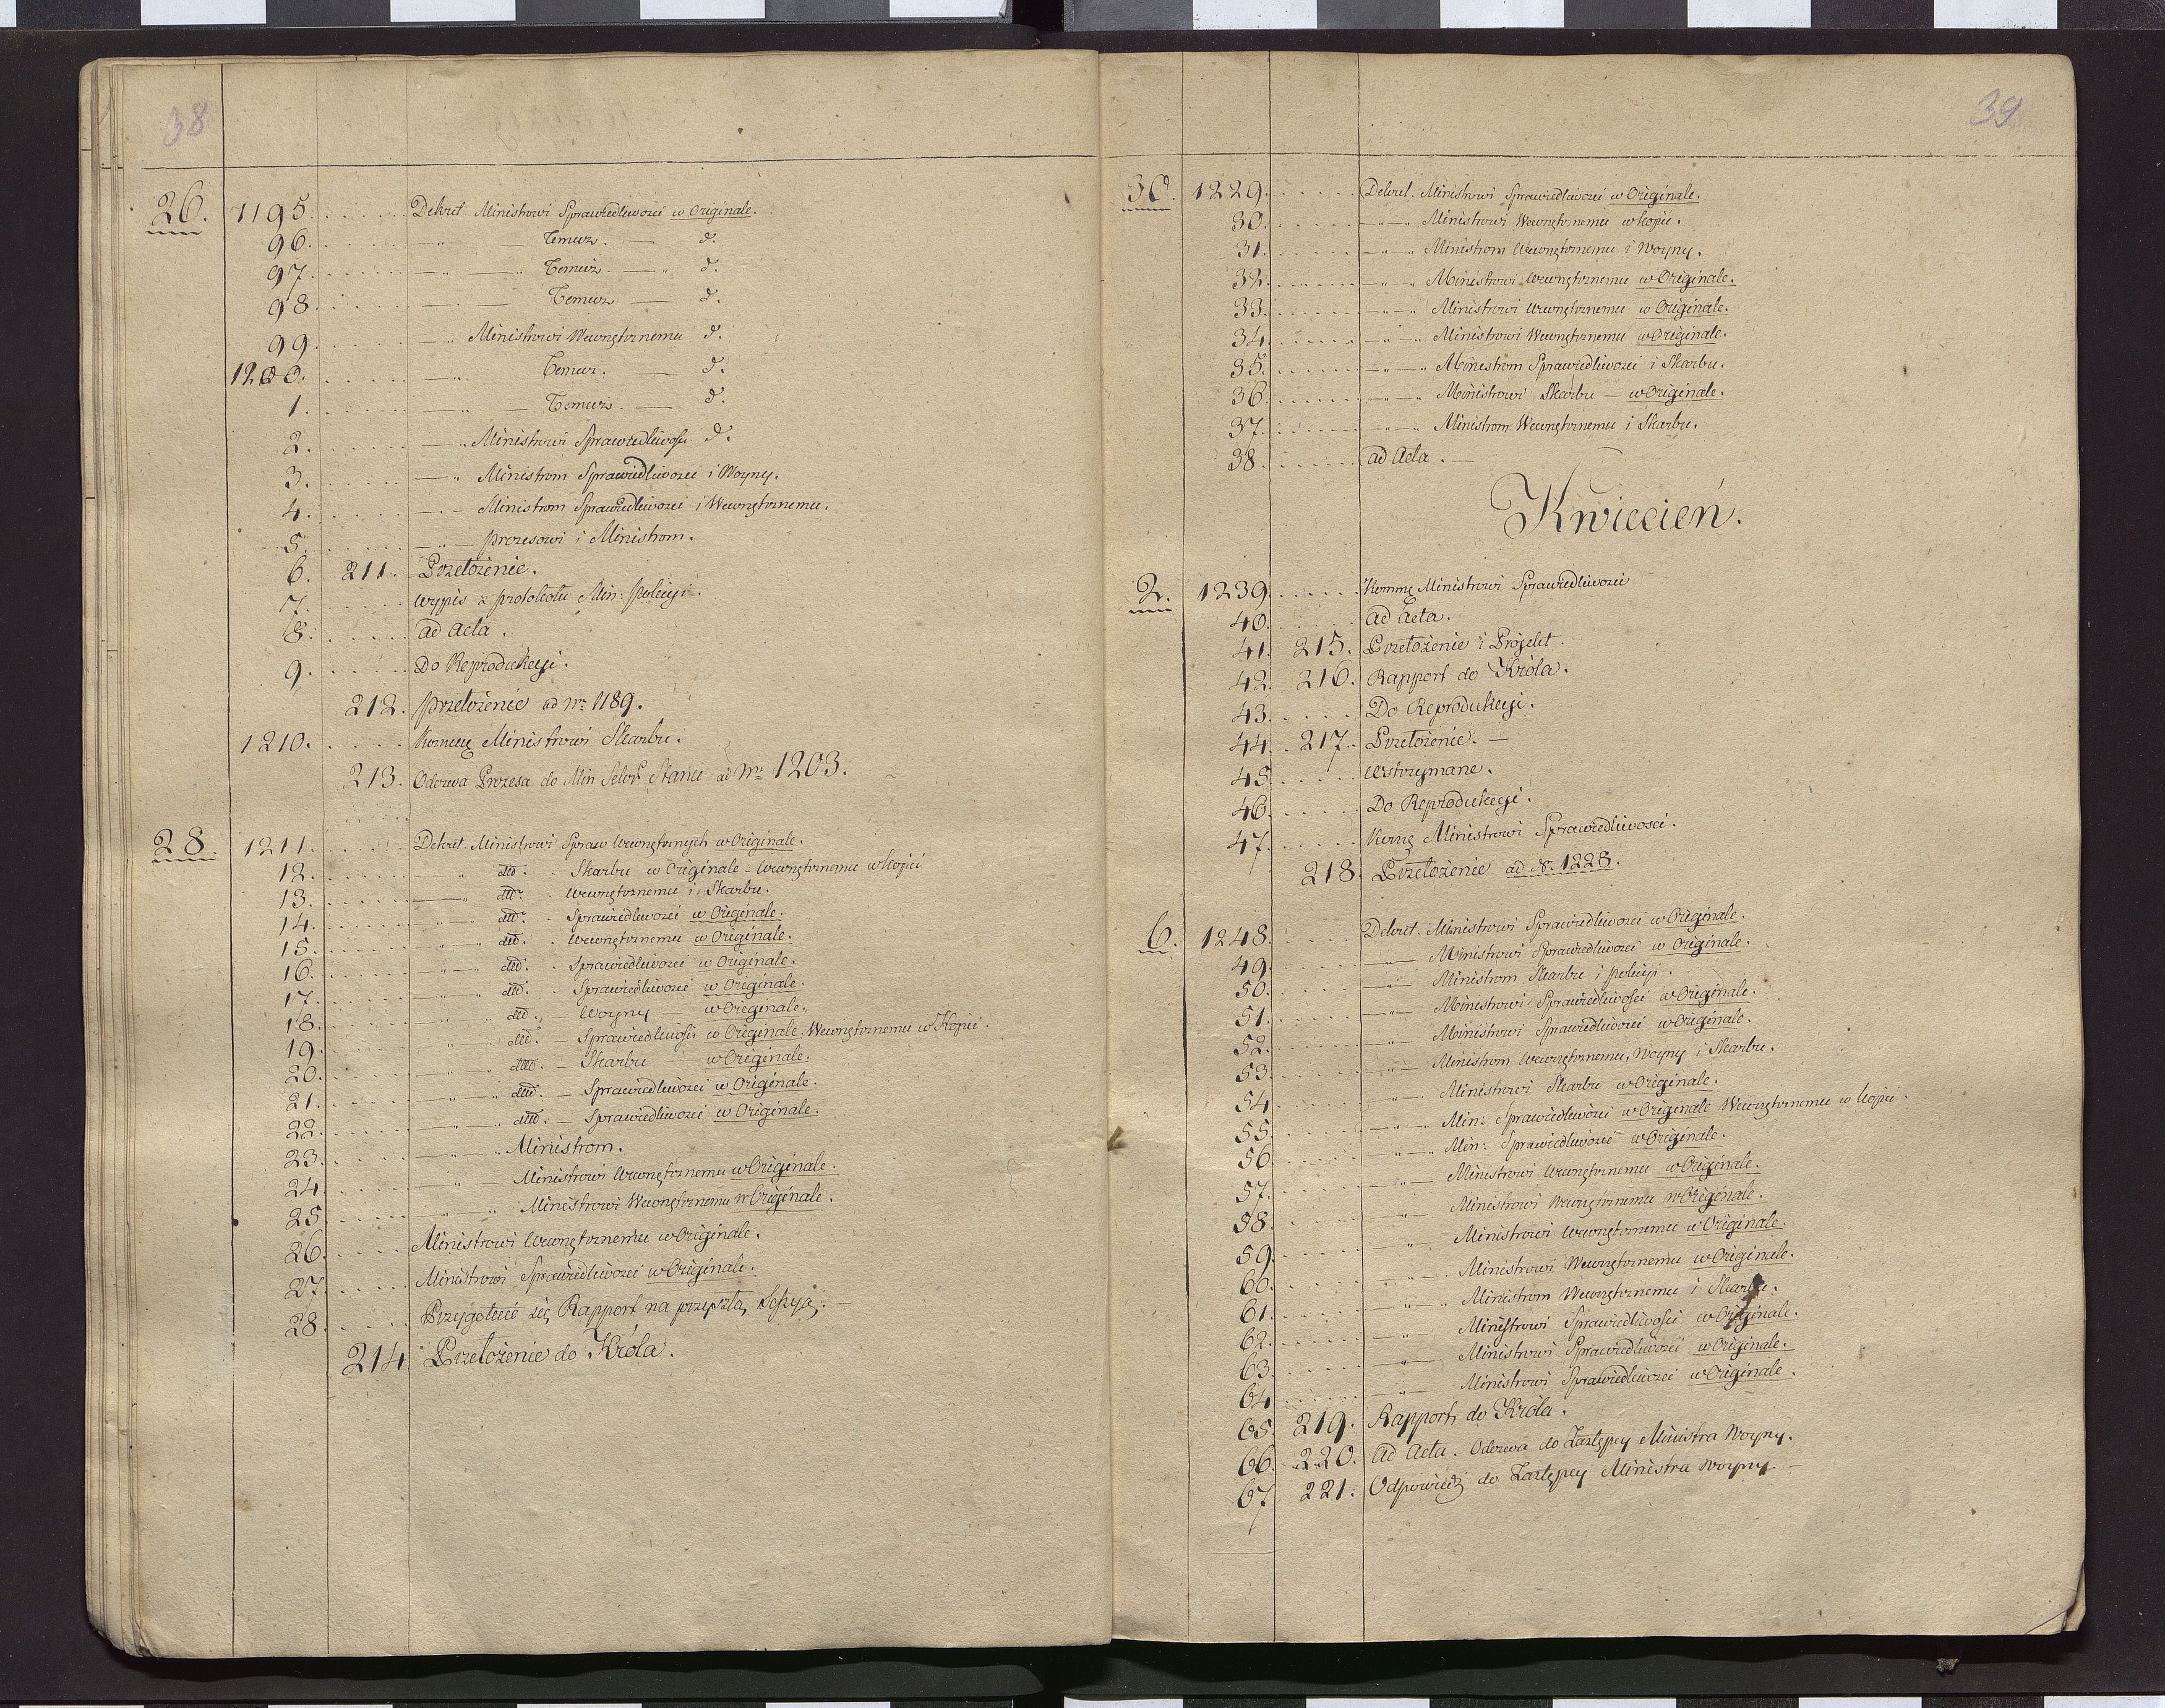 38
26. 1195. Dekret Ministrowi Sprawiedliwosci w Originale.
96. — Temuz. — d.
97. — Temuz. — d.
98. — Temuz — d.
99. — Ministrowi Wewnętrznemu d.
1200. — Temuz. — d.
1. — Temuz. — d.
2. — Ministrowi Sprawiedliwości d.
3. — Ministrom Sprawiedliwosci i Woyny.
4. — Ministrom Sprawiedliwosci i Wewnętrznemu.
5. — prezesowi i Ministrom.
6. 211. Przełożenie.
7. wypis z protokołu Min: policyi.
8. ad Acta.
9. Do Reprodukcyi.
212. przełożenie ad Nr: 1189.
1210. Kommę Ministrowi Skarbu.
213. Odezwa Prezesa do Min Sekr Stanu ad Nr: 1203.
28. 1211. Dekret Ministrowi Spraw Wewnętrznych w Originale.
12. — dtto. - Skarbu w Originale - Wewnętrznemu w kopii
13. — dtto. - Wewnętrznemu i Skarbu.
14. — dtto. - Sprawiedliwosci w Originale.
15. — dtto. - Wewnętrznemu w Originale.
16. — dtto. - Sprawiedliwosci w Originale.
17. — dtto. - Sprawiedliwosci w Originale.
18. — dtto. - Woyny — w Originale.
19. — dtto. - Sprawiedliwości w Originale, Wewnętrznemu w Kopii.
20. — dtto. - Skarbu — w Originale.
21. — dtto. - Sprawiedliwosci w Originale.
22. — dtto. - Sprawiedliwosci w Originale.
23. — Ministrom.
24. — Ministrowi Wewnętrznemu w Originale.
25. — Ministrowi Wewnętrznemu w Originale.
26. Ministrowi Wewnętrznemu w Originale.
27. Ministrowi Sprawiedliwosci w Originale.
28. Przygotuie się Rapport na przyszłą Sessyą. —
214. Przełożenie do Króla.
39
30. 1229. Dekret. Ministrowi Sprawiedliwosci w Originale.
30. — Ministrowi Wewnętrznemu w kopii.
31. — Ministrom Wewnętrznemu i Woyny.
32. — Ministrowi Wewnętrznemu w Originale.
33. — Ministrowi Wewnętrznemu w Originale.
34. — Ministrowi Wewnętrznemu w Originale.
35. — Ministrom Sprawiedliwosci i Skarbu.
36. — Ministrowi Skarbu — w Originale.
37. — Ministrom Wewnętrznemu i Skarbu.
38. ad Acta. —
Kwiecień.
2. 1239. Kommę Ministrowi Sprawiedliwosci
40. ad Acta.
41. 215. Przełożenie i Projekt.
42. 216. Rapport do Króla.
43. Do Reprodukcyi.
44. 217. Przełożenie. —
45. Wstrzymane.
46. Do Reprodukcyi.
47. Komę Ministrowi Sprawiedliwosci.
218. Przełożenie ad N: 1228.
6. 1248. Dekret. Ministrowi Sprawiedliwosci w Originale.
49. — Ministrowi Sprawiedliwosci w Originale.
50. — Ministrom Skarbu i policyi.
51. — Ministrowi Sprawiedliwości w Originale.
52. — Ministrowi Sprawiedliwosci w Originale.
53. — Ministrom Wewnętrznemu, Woyny i Skarbu.
54. — Ministrowi Skarbu w Originale.
55. — Min: Sprawiedliwosci w Originale Wewnętrznemu w kopii.
56. — Min: Sprawiedliwosci w Originale.
57. — Ministrowi Wewnętrznemu w Originale.
58. — Ministrowi Wewnętrznemu w Originale.
59. — Ministrowi Wewnętrznemu w Originale.
60. — Ministrowi Wewnętrznemu w Originale.
61. — Ministrom Wewnętrznemu i Skarbu.
62. — Ministrowi Sprawiedliwości w Originale.
63. — Ministrowi Sprawiedliwosci w Originale.
64. — Ministrowi Sprawiedliwosci w Originale.
65. 219. Rapport do Króla.
66. 220. Ad Acta. Odezwa do Zastępcy Ministra Woyny.
67 221. Odpowiedź do Zastępcy Ministra Woyny. —